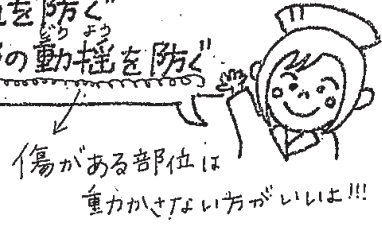 を防ぐ
の動揺を防ぐ
どうよう
傷がある部位は
動かさない方がいいよ!!!